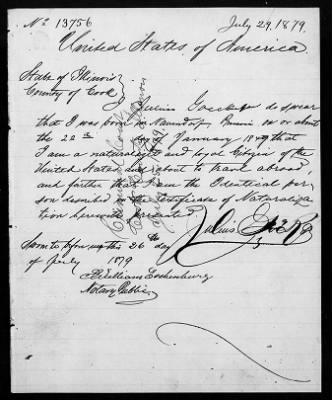 No 13756
July 29. 1879
United States of America
State of Illinois
County of Cook
I Julius do swear
that I was born in on or about
the 22d day of January 1849 that
I am a naturalized and loyal Citizen of the
United States and about to travel abroad
and further that I am the Identical per
son described in the Certificate of Naturaliza
tion herewith presented
Julius
Sworn to before me this 26th day
of July 1879
William Eschenburg
Notary Public